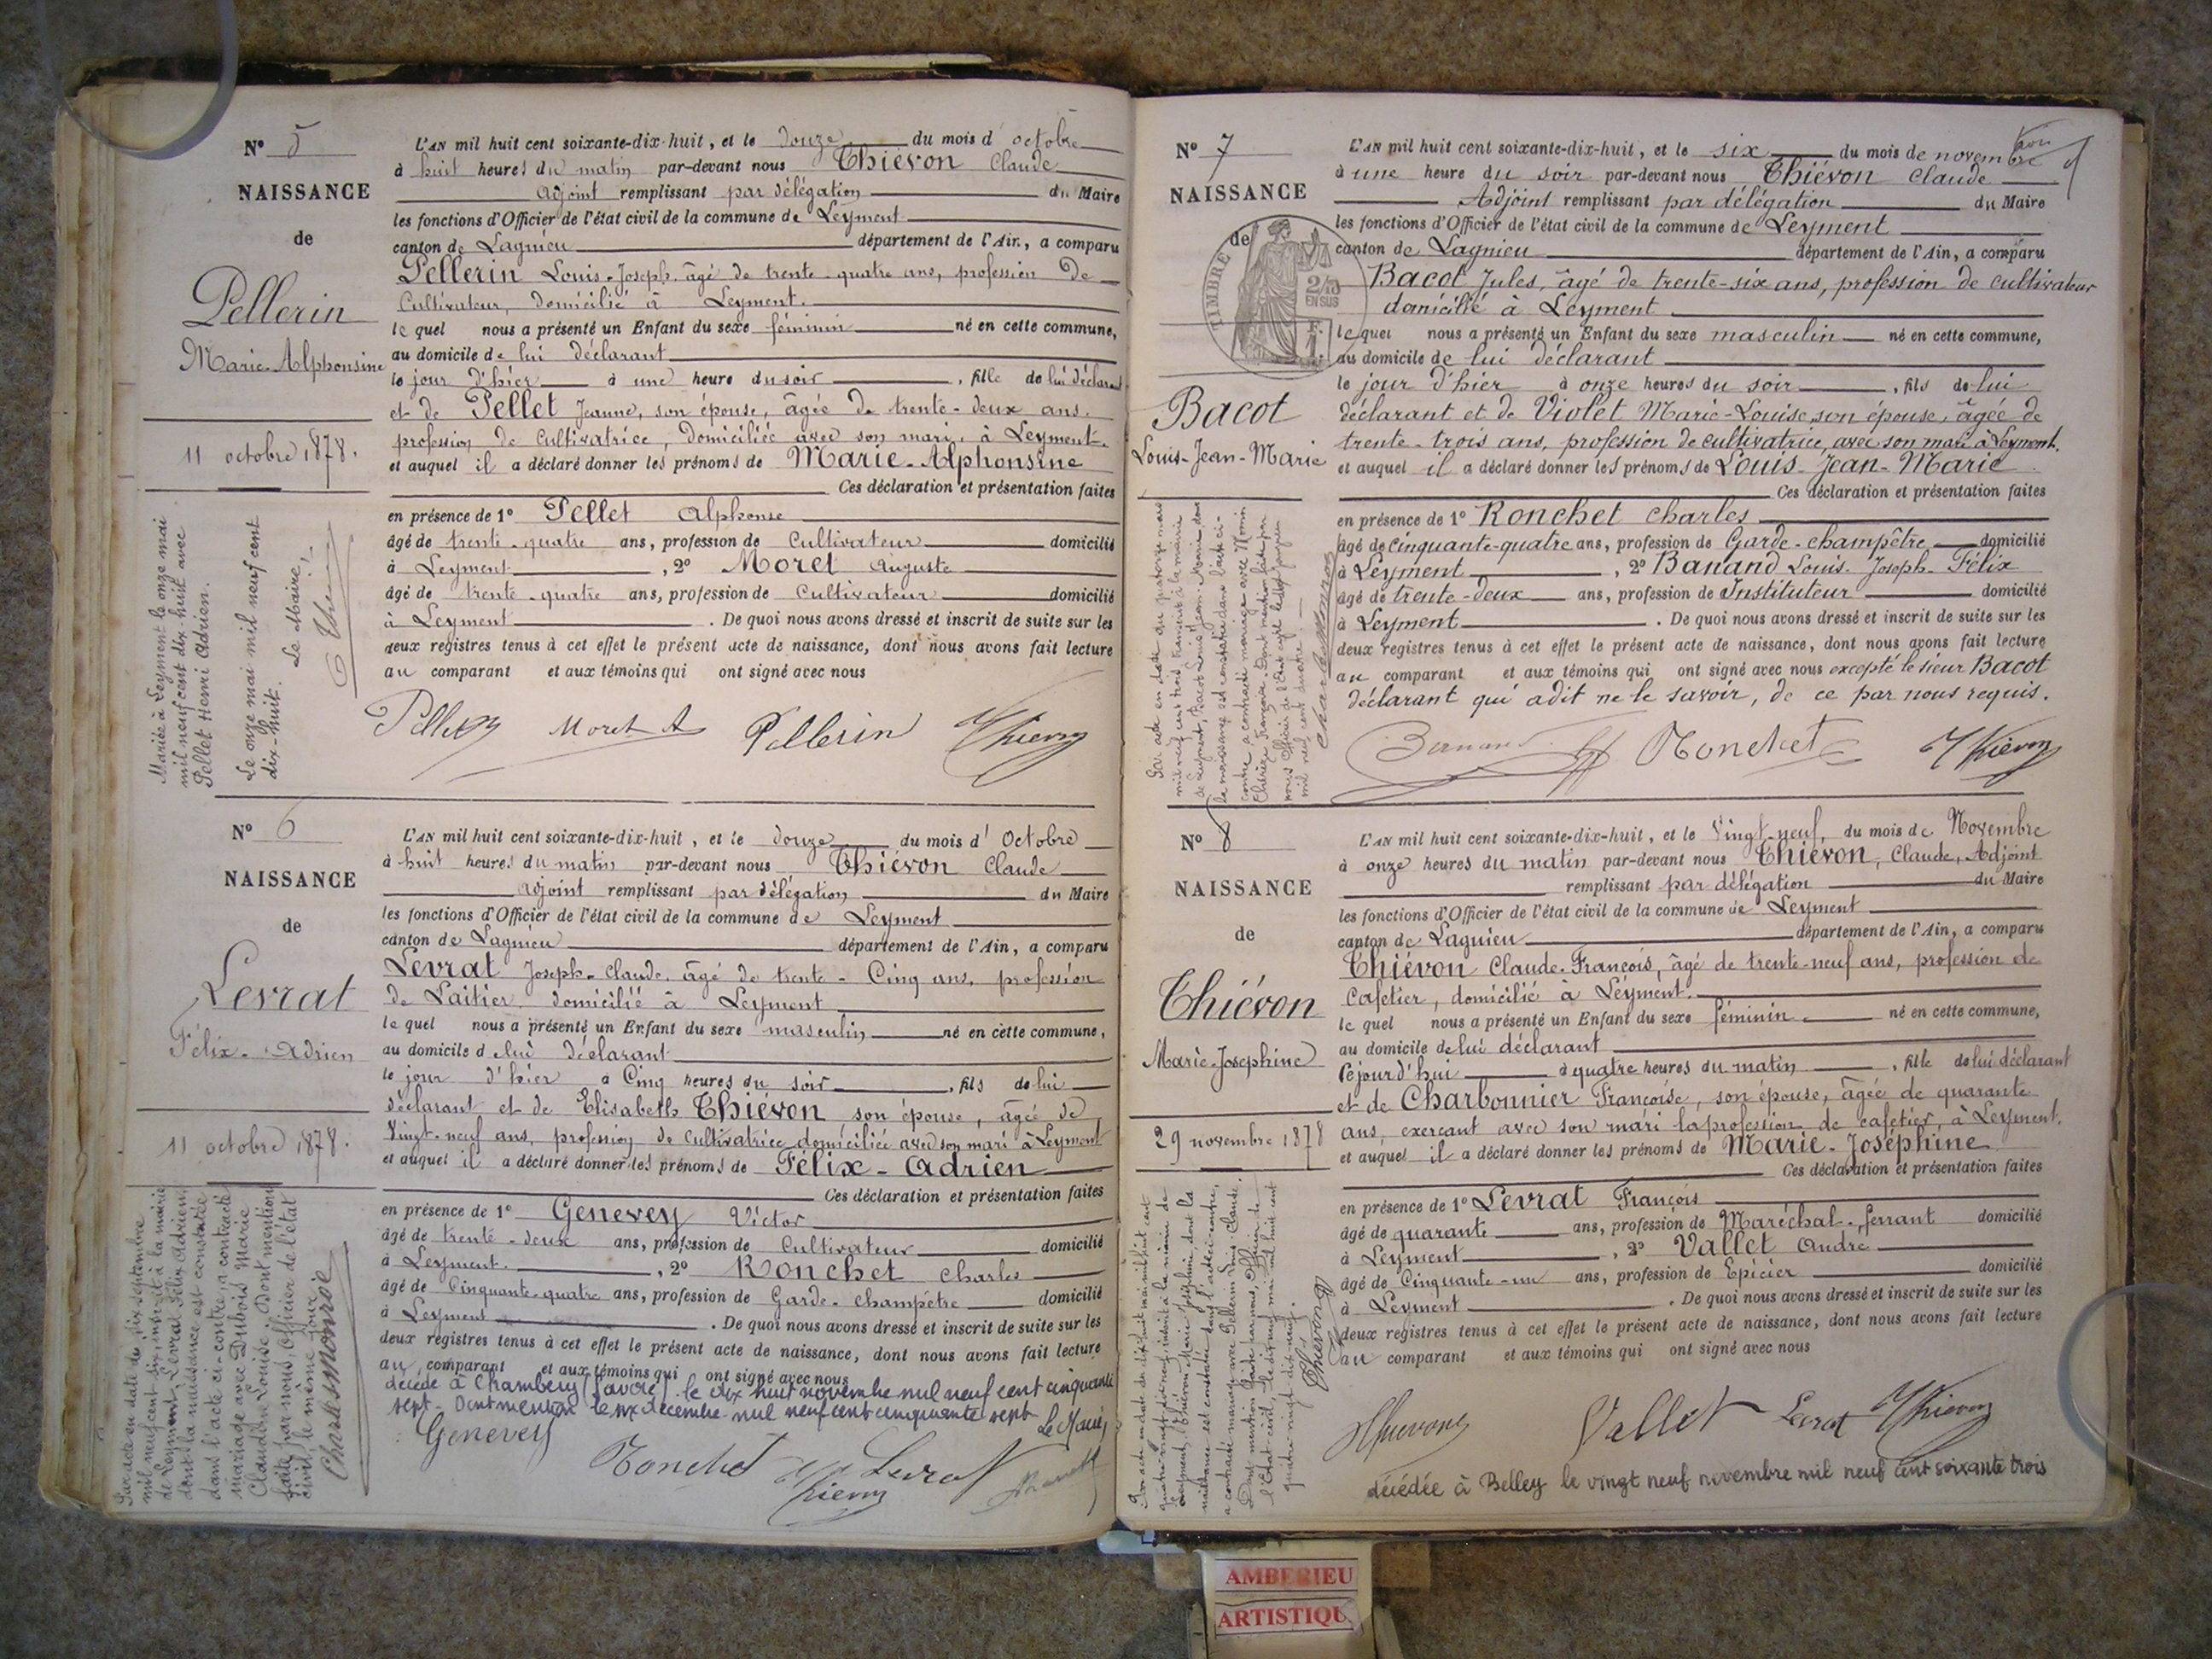 N° 5
NAISSANCE
de
Pellerin
Marie-Alphonsine
11 octobre 1878.
Mariée à Leyment le onze mai
mil neuf cent dix huit avec
Pellet Henri Adrien.
Le onze mai mil neuf cent
dix-huit. Le Maire,
L'AN mil huit cent soixante-dix-huit, et le douze du mois d'octobre
à huit heures du matin par-devant nous Thiévon Claude
adjoint remplissant par délégation du Maire
les fonctions d'Officier de l'état civil de la commune de Leyment
canton de Lagnieu département de l'Ain, a comparu
Pellerin Louis-Joseph âgé de trente-quatre ans, profession de
Cultivateur, domicilié à Leyment.
lequel nous a présenté un Enfant du sexe féminin né en cette commune,
au domicile de lui déclarant
le jour d'hier à une heure du soir, fille de lui déclarant
et de Pellet Jeanne, son épouse, âgée de trente-deux ans.
profession de Cultivatrice, domiciliée avec son mari, à Leyment.
et auquel il a déclaré donner les prénoms de Marie-Alphonsine
Ces déclaration et présentation faites
en présence de 1° Pellet Alphonse
âgé de trente-quatre ans, profession de Cultivateur domicilié
à Leyment, 2° Moret Auguste
âgé de trente-quatre ans, profession de Cultivateur domicilié
à Leyment. De quoi nous avons dressé et inscrit de suite sur les
deux registres tenus à cet effet le présent acte de naissance, dont nous avons fait lecture
au comparant et aux témoins qui ont signé avec nous
Moret A Pellerin Thievon
N° 6
NAISSANCE
de
Levrat
Félix-Adrien
11 octobre 1878.
Par acte en date du dix septembre
mil neuf cent six, inscrit à la mairie
de Leyment, Levrat Félix Adrien
dont la naissance est constatée
dans l'acte ci-contre, a contracté
mariage avec Dubois Marie
Claudine Louise. Dont mention
faite par nous Officier de l'état
civil, le même jour
L'AN mil huit cent soixante-dix-huit, et le douze du mois d'Octobre
à huit heures du matin par-devant nous Thiévon Claude
adjoint remplissant par délégation du Maire
les fonctions d'Officier de l'état civil de la commune de Leyment
canton de Lagnieu département de l'Ain, a comparu
Levrat Joseph-Claude âgé de trente-Cinq ans, profession
de Laitier domicilié à Leyment
lequel nous a présenté un Enfant du sexe masculin né en cette commune,
au domicile de lui déclarant
le jour d'hier à Cinq heures du soir, fils de lui
déclarant et de Elisabeth Thiévon son épouse, âgée de
Vingt-neuf ans, profession de Cultivatrice domiciliée avec son mari à Leyment
et auquel il a déclaré donner les prénoms de Félix-Adrien
Ces déclaration et présentation faites
en présence de 1° Genevey Victor
âgé de trente-deux ans, profession de Cultivateur domicilié
à Leyment., 2° Ronchet Charles
âgé de Cinquante-quatre ans, profession de Garde-champêtre domicilié
à Leyment. De quoi nous avons dressé et inscrit de suite sur les
deux registres tenus à cet effet le présent acte de naissance, dont nous avons fait lecture
au comparant et aux témoins qui ont signé avec nous
décédé à Chambéry (Savoie) le dix huit novembre mil neuf cent cinquante
sept. Dont mention le six décembre mil neuf cent cinquante sept Le Maire,
Genevey Ronchet Thievon Levrat
N° 7
NAISSANCE
de
TIMBRE
2/10
EN SUS
Bacot
Louis-Jean-Marie
Par acte en date du quatorze mars
mil neuf cent trois transcrit à la mairie
de Leyment, Bacot Louis Jean-Marie dont
la naissance est constatée dans l'acte ci-
contre a contracté mariage avec
L'AN mil huit cent soixante-dix-huit, et le six du mois de novembre
à une heure du soir par-devant nous Thiévon Claude
Adjoint remplissant par délégation du Maire
les fonctions d'Officier de l'état civil de la commune de Leyment
canton de Lagnieu département de l'Ain, a comparu
Bacot Jules, âgé de trente-six ans, profession de cultivateur
domicilié à Leyment
lequel nous a présenté un Enfant du sexe masculin né en cette commune,
au domicile de lui déclarant
le jour d'hier à onze heures du soir, fils de lui
déclarant et de Violet Marie-Louise, son épouse, âgée de
trente-trois ans, profession de cultivatrice, avec son mari à Leyment.
et auquel il a déclaré donner les prénoms de Louis-Jean-Marie.
Ces déclaration et présentation faites
en présence de 1° Ronchet Charles
âgé de Cinquante-quatre ans, profession de Garde-champêtre domicilié
à Leyment, 2° Banand Louis-Joseph-Félix
âgé de trente-deux ans, profession de Instituteur domicilié
à Leyment. De quoi nous avons dressé et inscrit de suite sur les
deux registres tenus à cet effet le présent acte de naissance, dont nous avons fait lecture
au comparant et aux témoins qui ont signé avec nous excepté le sieur Bacot
déclarant qui a dit ne le savoir, de ce par nous requis.
Ronchet Thievon
N° 8
NAISSANCE
de
Thiévon
Marie-Josephine
29 novembre 1878
L'AN mil huit cent soixante-dix-huit, et le Vingt-neuf, du mois de Novembre
à onze heures du matin par-devant nous Thiévon, Claude, Adjoint
remplissant par délégation du Maire
les fonctions d'Officier de l'état civil de la commune de Leyment
canton de Lagnieu département de l'Ain, a comparu
Thiévon Claude-François, âgé de trente-neuf ans, profession de
Cafetier, domicilié à Leyment.
lequel nous a présenté un Enfant du sexe féminin né en cette commune,
au domicile de lui déclarant
le jour d'hui à quatre heures du matin, fille de lui déclarant
et de Charbonnier Françoise, son épouse, âgée de quarante
ans, exerçant avec son mari la profession de cafetier, à Leyment.
et auquel il a déclaré donner les prénoms de Marie-Joséphine
Ces déclaration et présentation faites
en présence de 1° Levrat François
âgé de quarante ans, profession de Maréchal-ferrant domicilié
à Leyment, 2° Vallet André
âgé de Cinquante-un ans, profession de Epicier domicilié
à Leyment. De quoi nous avons dressé et inscrit de suite sur les
deux registres tenus à cet effet le présent acte de naissance, dont nous avons fait lecture
au comparant et aux témoins qui ont signé avec nous
Thievon Vallet Levrat Thievon
décédée à Belley le vingt neuf novembre mil neuf cent soixante trois
AMBERIEU
ARTISTIQU